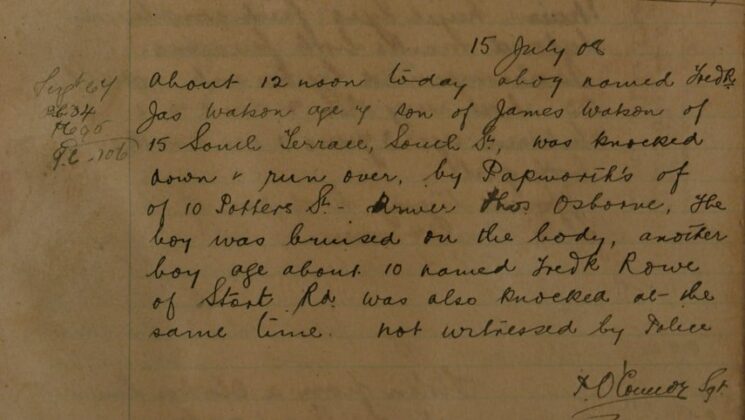 15 July 08
Sept 64
About 12 noon today a boy named Fredk
Jas Watson age 4 son of James Watson of
15 South Terrace, South St, was knocked
down & run over, by Papworth's of
of 10 Potters St - Driver Thos Osborne, The
boy was bruised on the body, another
boy age about 10 named Fredk Rowe
of Stort Rd was also knocked at the
same time. not witnessed by Police
O'Connor Sgt